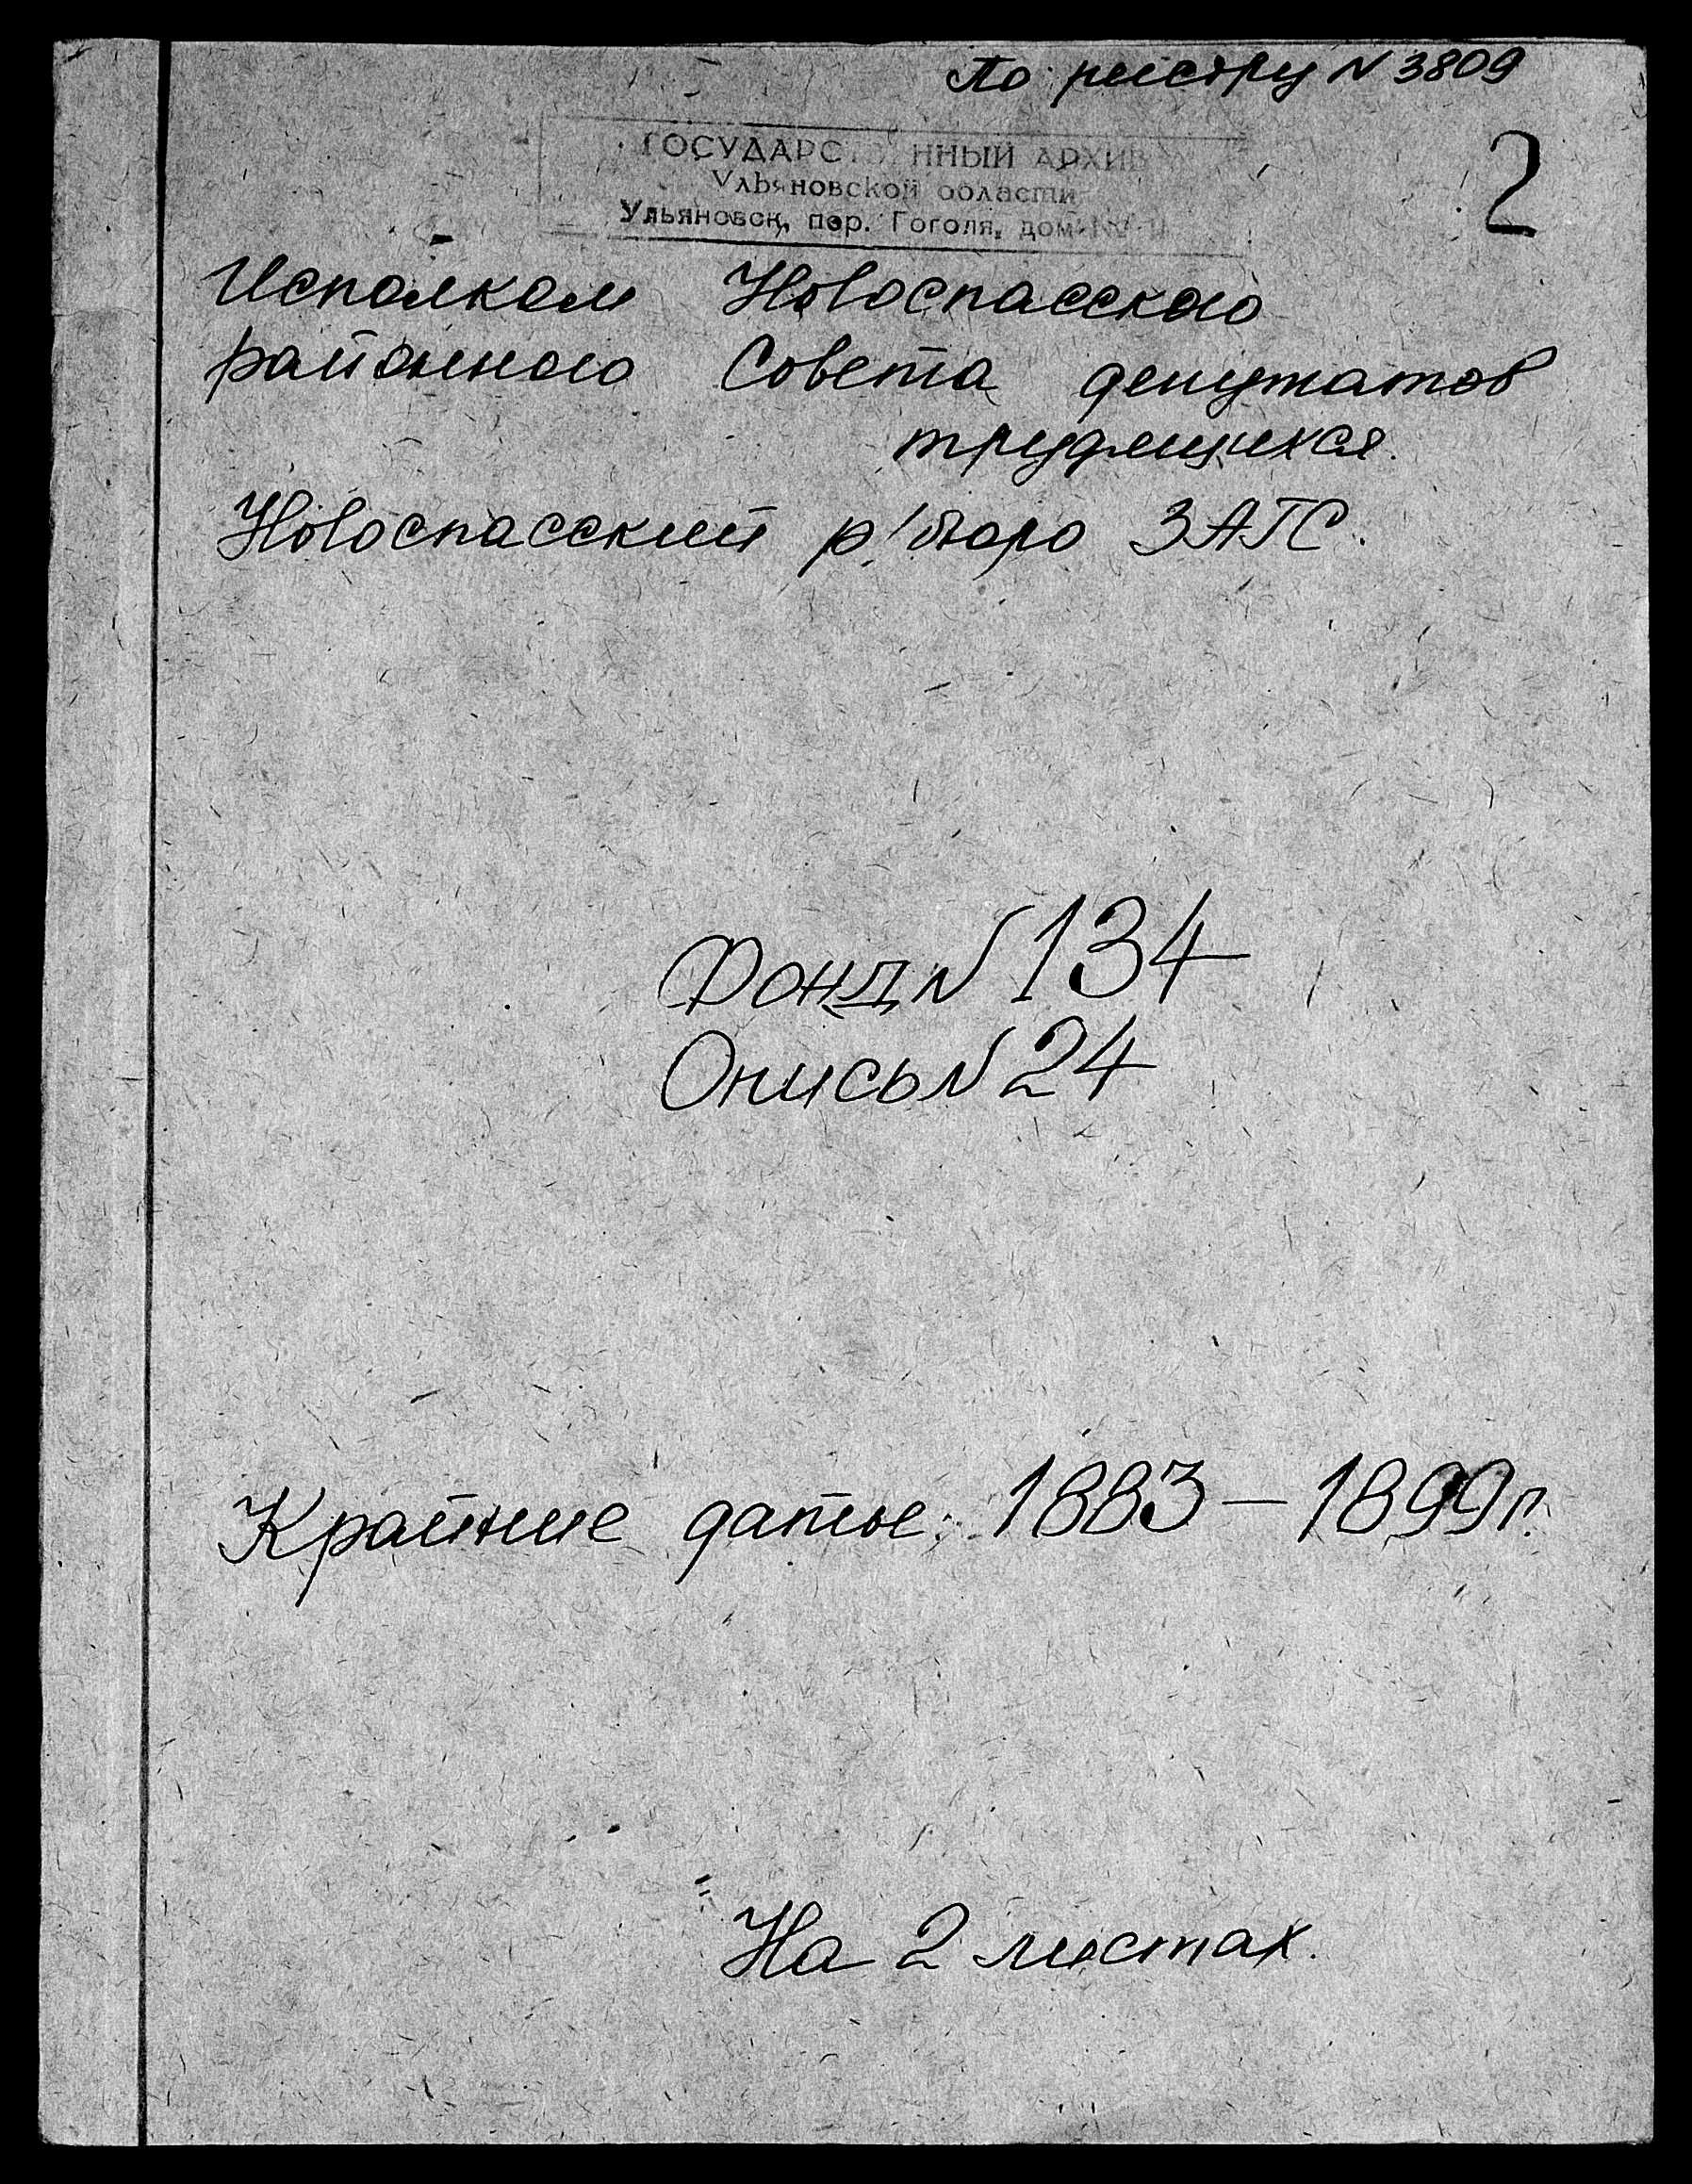 По реестру N 3809
2
ГОСУДАРСТВЕННЫЙ АРХИВ
Ульяновской области
Ульяновск, пер. Гоголя, дом №
Исполком Новоспасского
районного Совета депутатов
трудящихся.
Новоспасский р/бюро ЗАГС.
Фонд N 134
Опись N 24
Крайние даты: 1883 — 1899 г.
На 2 листах.